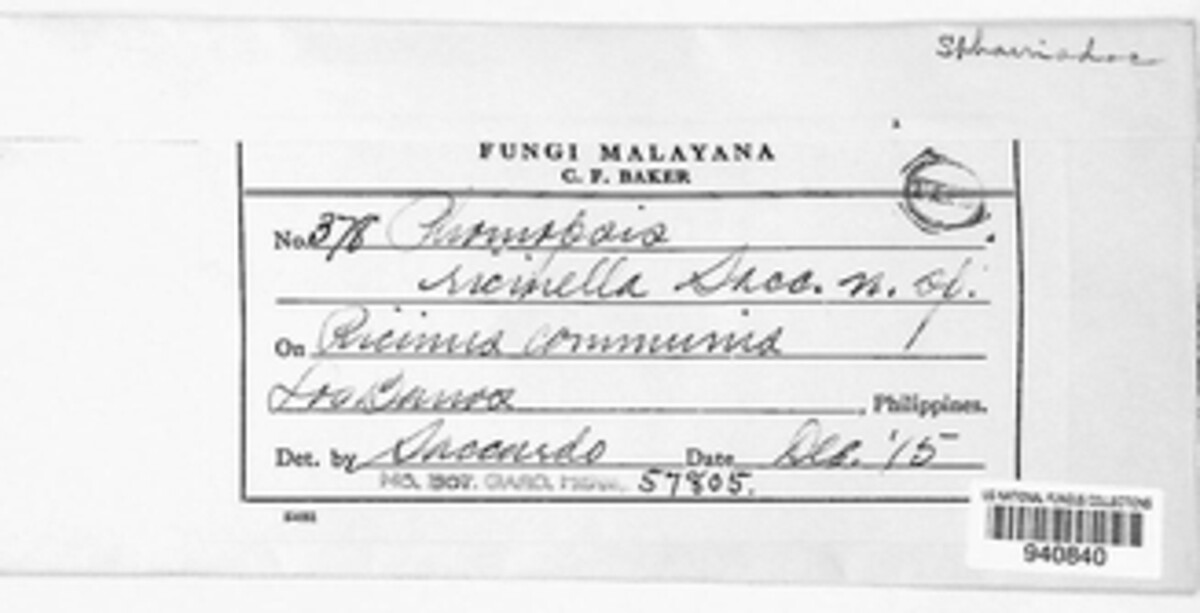 Sphaerioidae
FUNGI MALAYANA
C. F. BAKER
No. 378 Phomopsis
ricinella Sacc. n. sp.
On Ricinus communis
Los Banos, Philippines.
Det. by Saccardo Date Dec. '15
MO. BOT. GARD. HERB. 57805.
US NATIONAL FUNGUS COLLECTIONS
940840